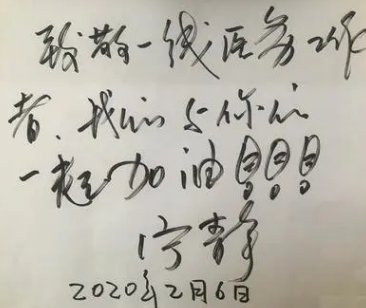 致敬一线医务工作
者，我们与你们
一起加油！！！
宁静
2020年2月6日